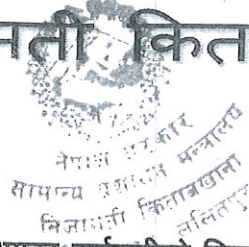 नती कित
नेपाल सरकार
सामान्य प्रशासन मन्त्रालय
निजामती किताबखाना
ललितपुर